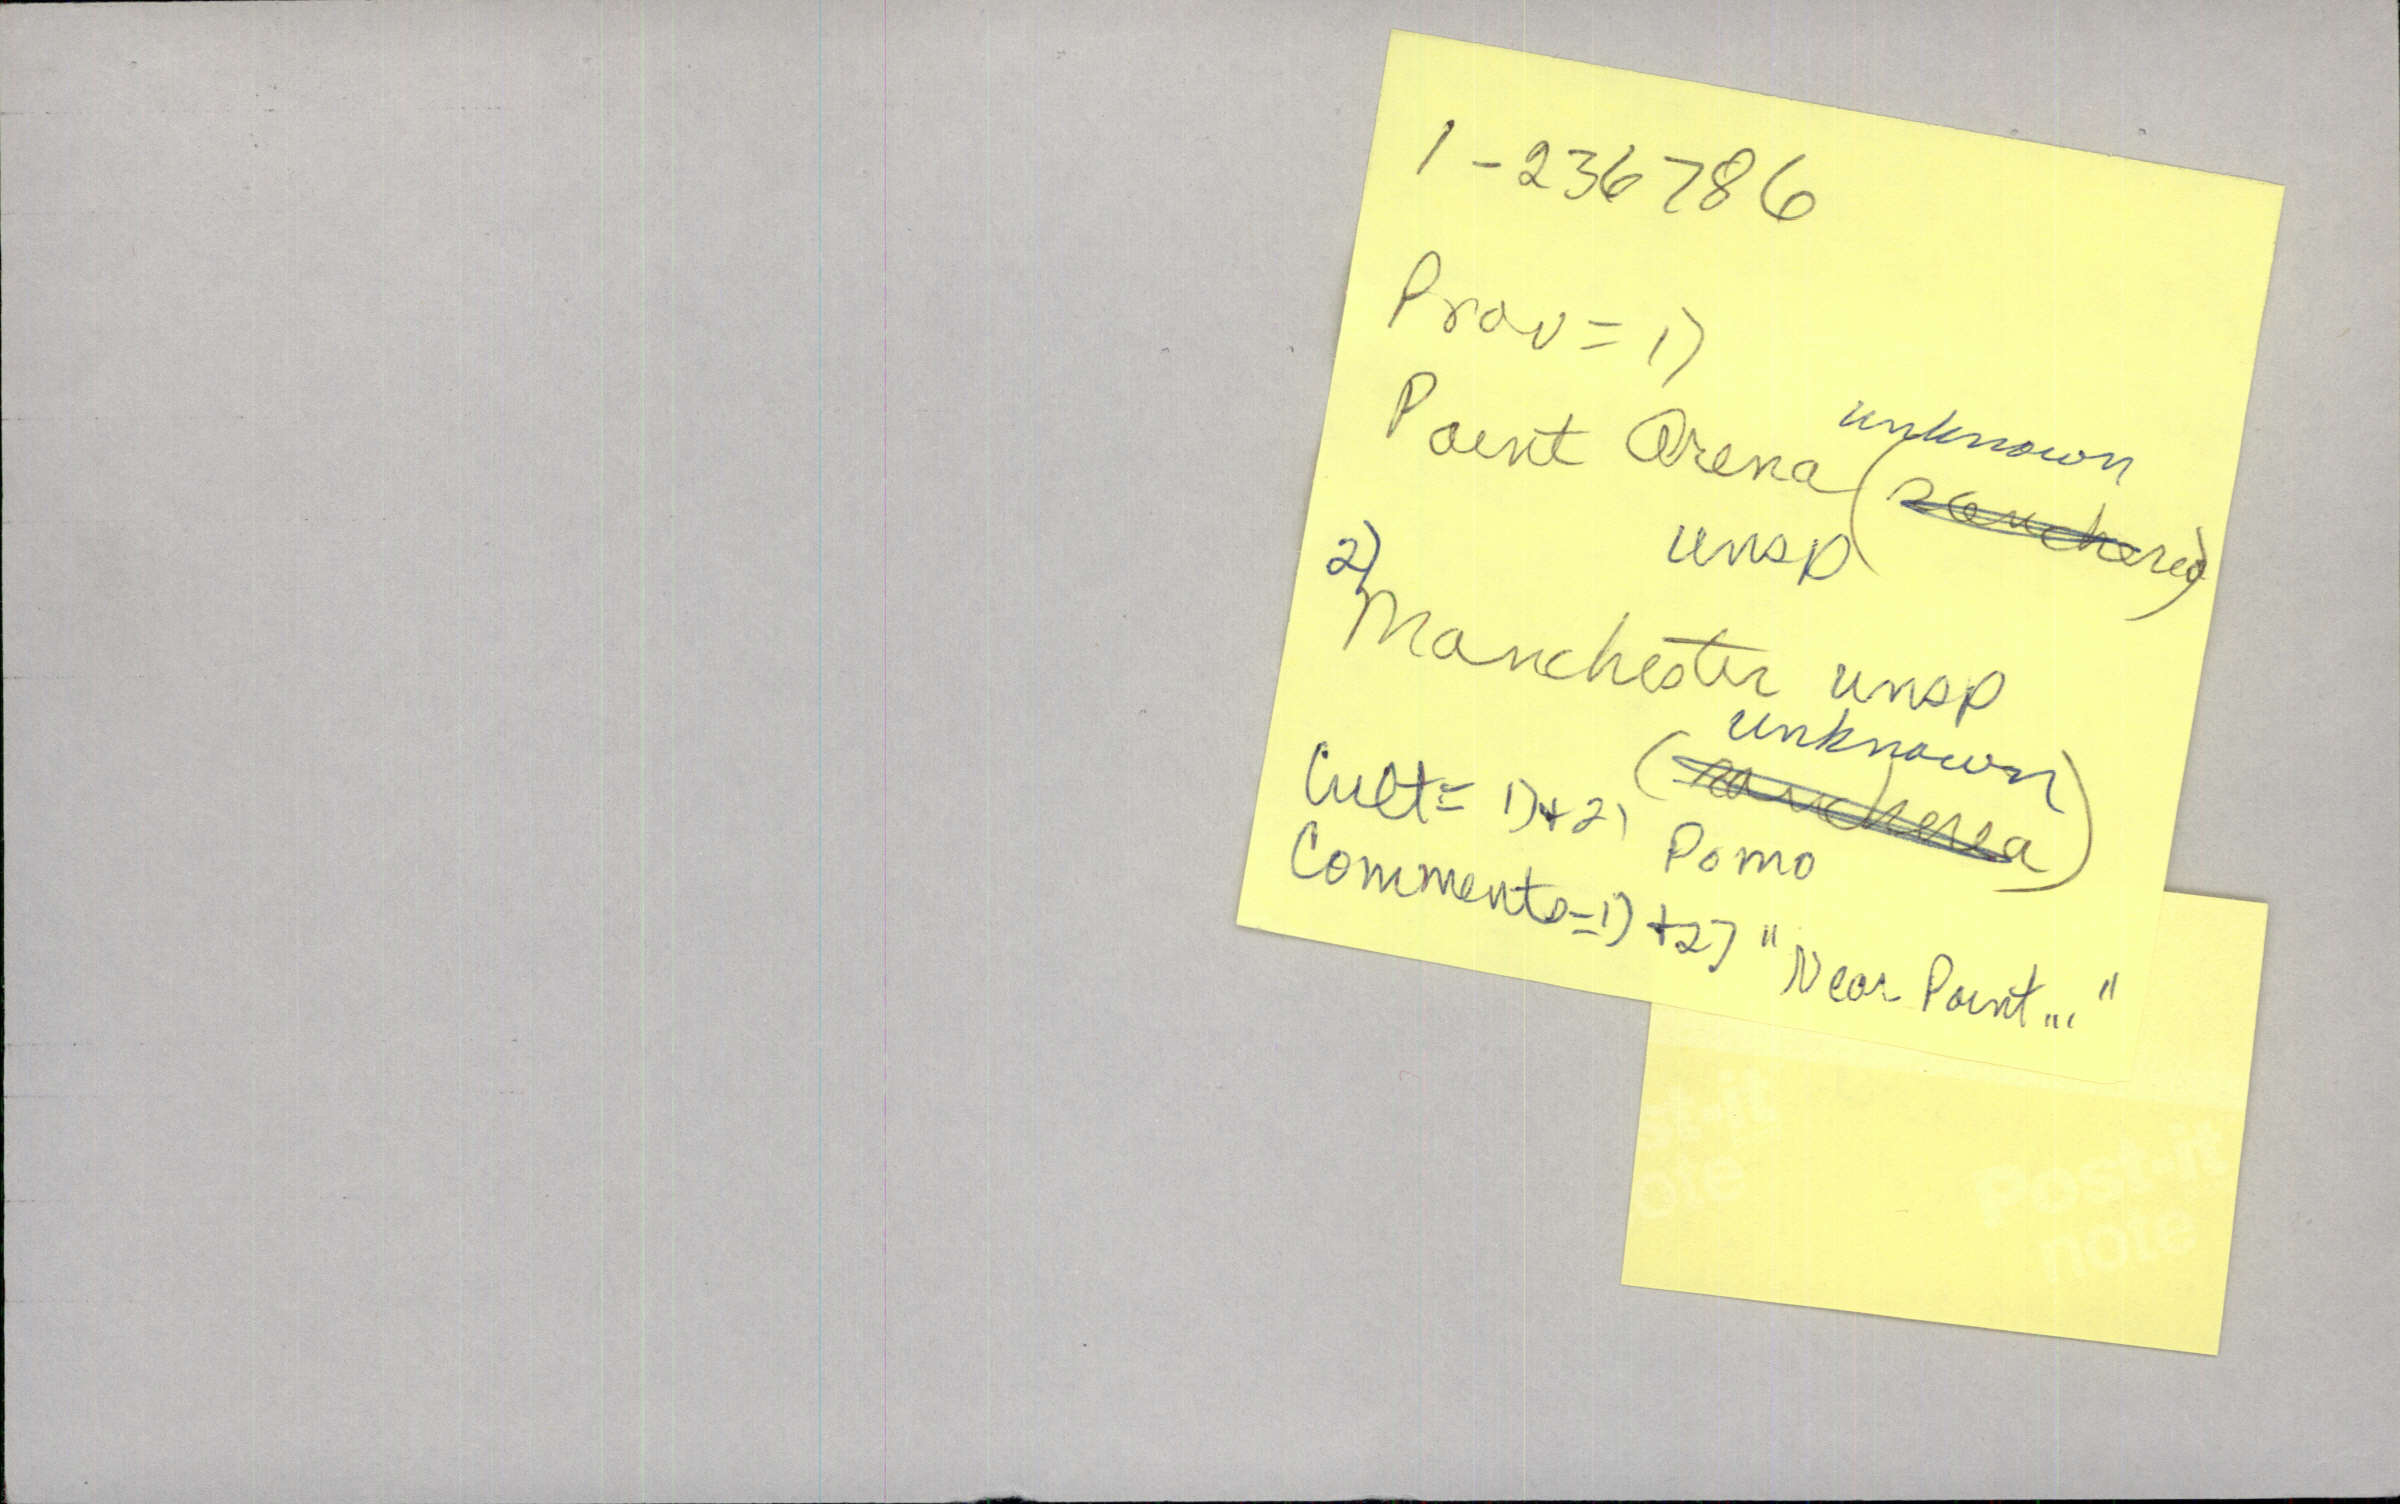 1-236786
Prov = 1)
Point Arena (unknown
unsp rancheria)
2)
Manchester unsp
(unknown
rancheria)
Cult = 1) + 2) Pomo
Comments = 1) + 2) "Near Point..."
st-it
ote
Post-it
note